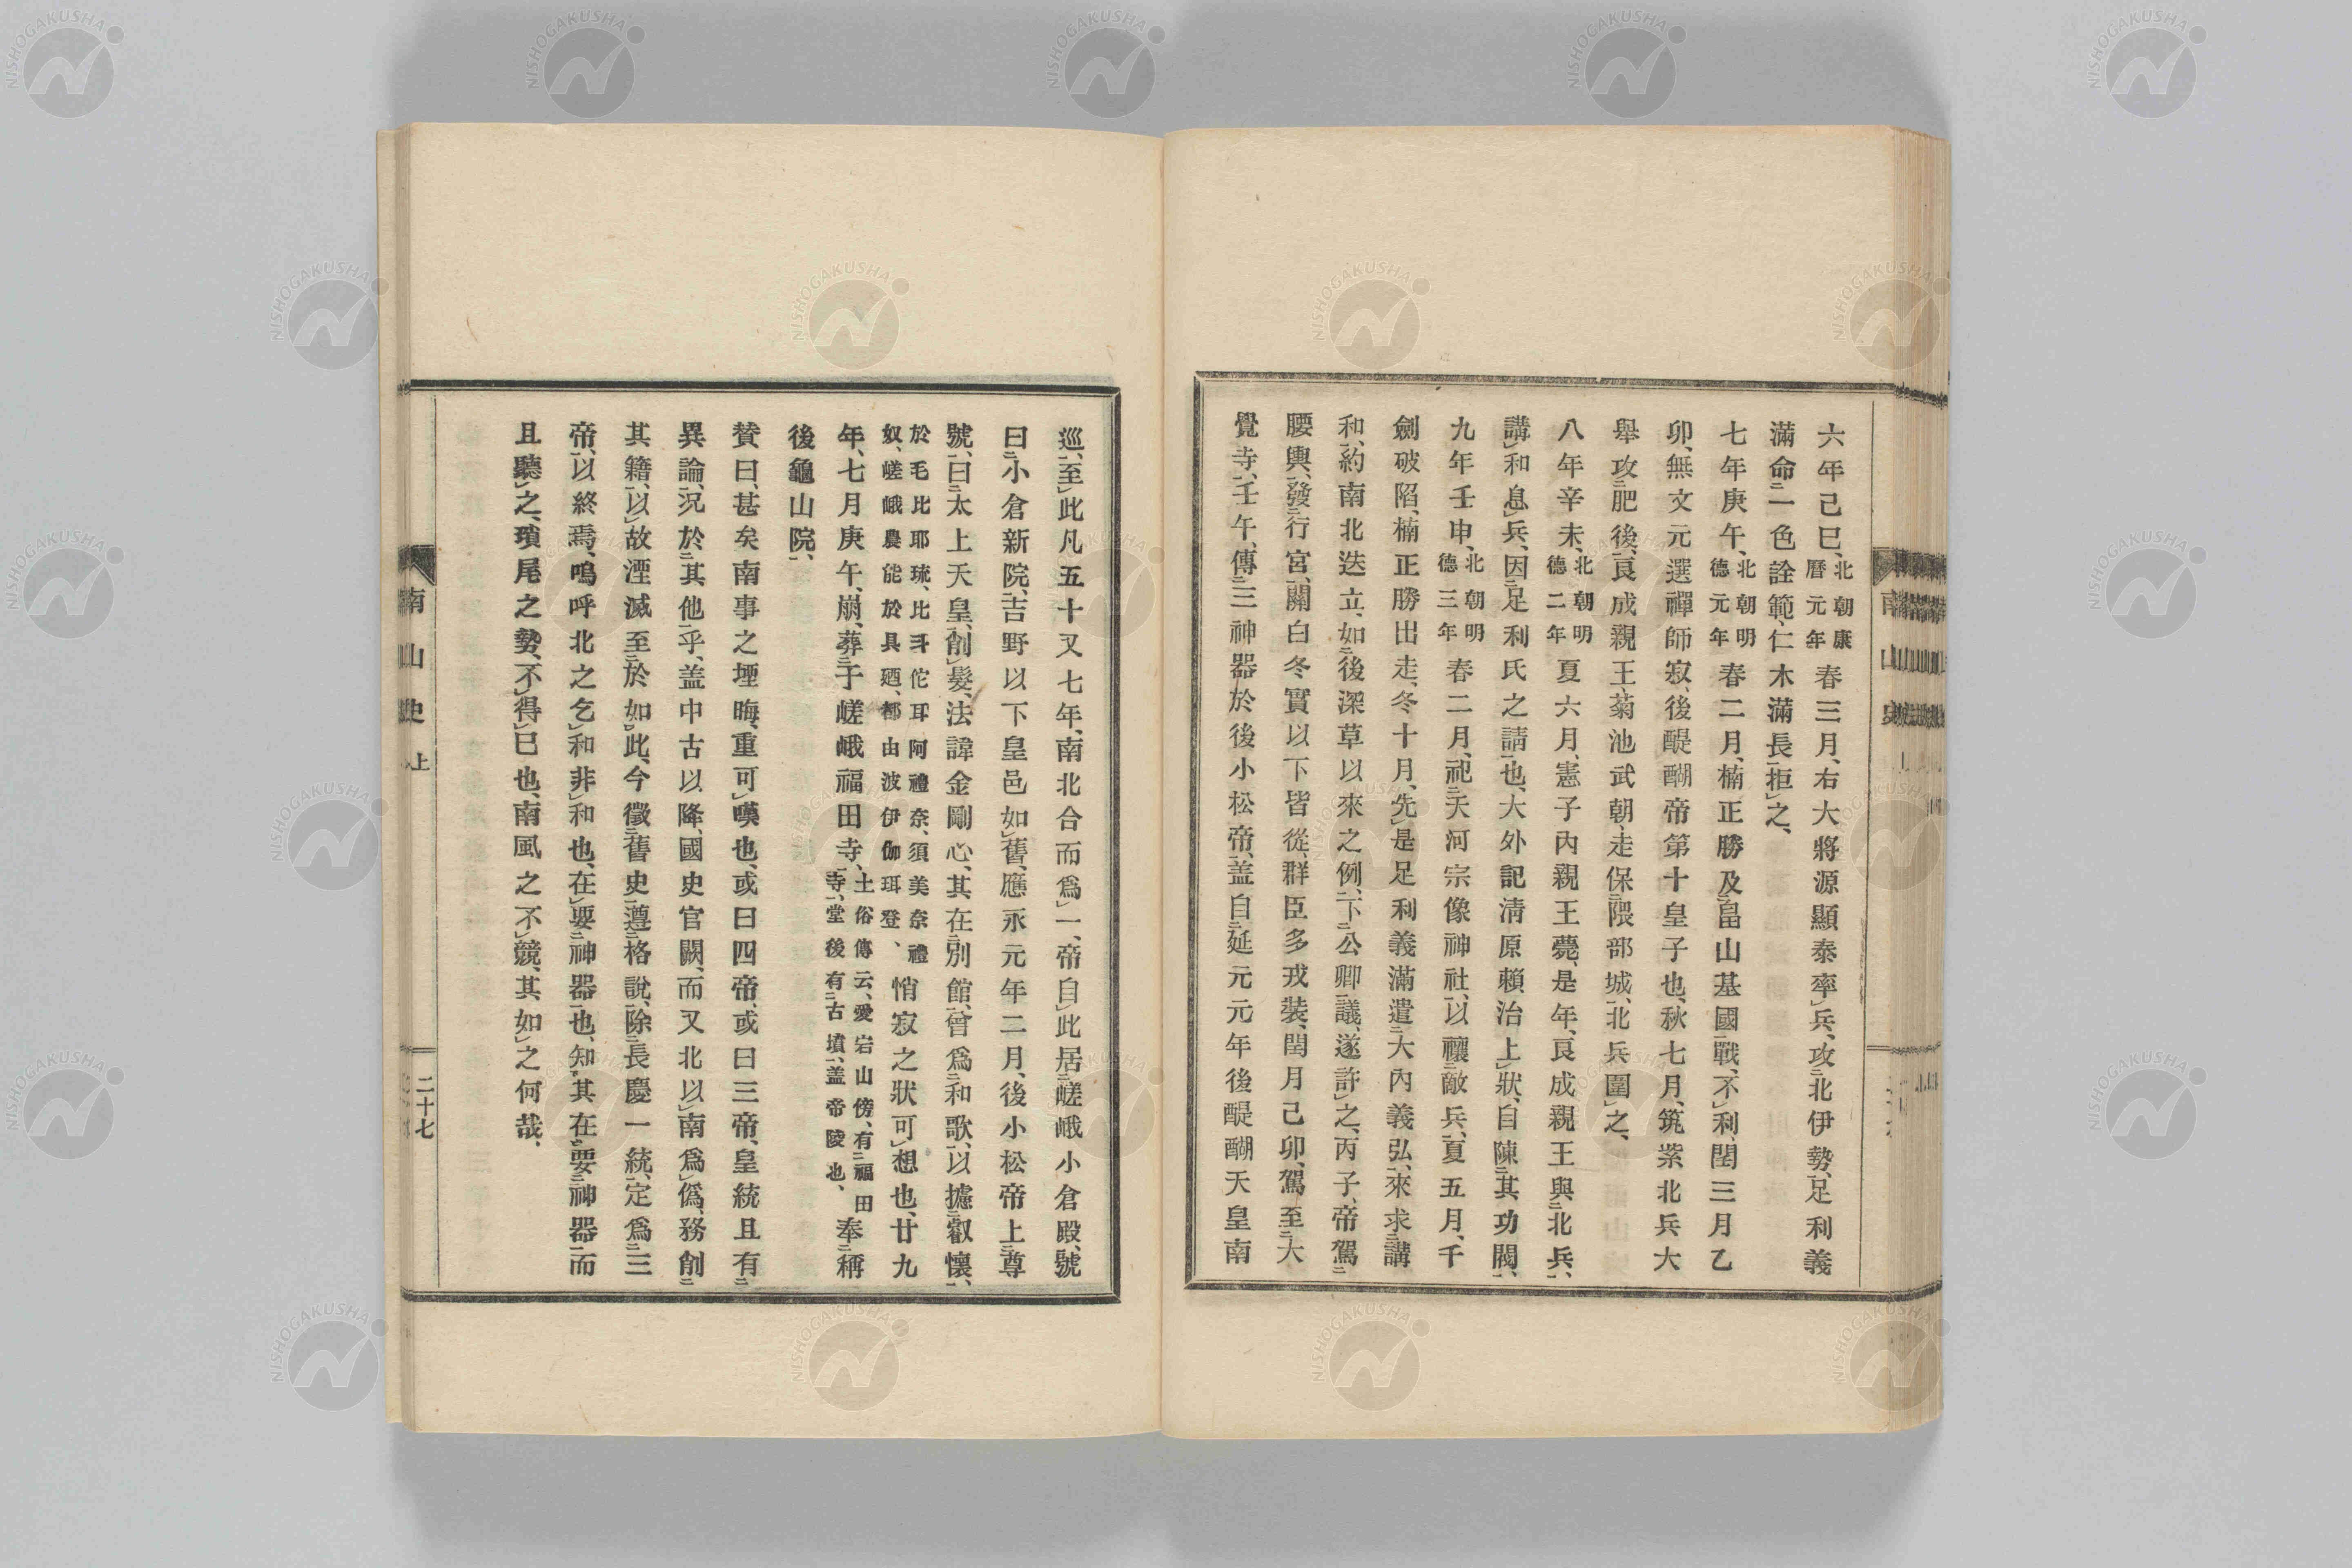 六年己巳、北朝康曆元年春三月、右大將源顯泰率兵、攻北伊勢、足利義
滿命一色詮範、仁木滿長拒之、
七年庚午、北朝明德元年春二月、楠正勝及畠山基國戰、不利、閏三月乙
卯、無文元選禪師寂、後醍醐帝第十皇子也、秋七月、筑紫北兵大
舉攻肥後、良成親王、菊池武朝、走保隈部城、北兵圍之、
八年辛未、北朝明德二年夏六月、憲子內親王薨、是年、良成親王與北兵、
講和息兵、因足利氏之請也、大外記清原賴治上狀、自陳其功閥、
九年壬申、北朝明德三年春二月、祀天河宗像神社、以禳敵兵、夏五月、千
劍破陷、楠正勝出走、冬十月、先是足利義滿遣大內義弘、來求講
和、約南北迭立、如後深草以來之例、下公卿議、遂許之、丙子、帝駕
腰輿、發行宮、關白冬實以下皆從、群臣多戎裝、閏月己卯、駕至大
覺寺、壬午、傳三神器於後小松帝、蓋自延元元年後醍醐天皇南
巡、至此凡五十又七年、南北合而爲一、帝自此居嵯峨小倉殿、號
曰小倉新院、吉野以下皇邑如舊、應永元年二月、後小松帝上尊
號、曰太上天皇、創髮、法諱金剛心、其在別館、曾爲和歌、以攄叡懷、
於毛比耶琉、比斗佗耳阿禮奈、須美奈禮奴、嵯峨農能於具廼、都由波伊伽珥登、悄寂之狀可想也、廿九
年、七月庚午、崩、葬于嵯峨福田寺、土俗傳云、愛宕山傍、有福田寺、堂後有古墳、蓋帝陵也、奉稱
後龜山院、
贊曰、甚矣南事之堙晦、重可嘆也、或曰四帝、或曰三帝、皇統且有
異論、況於其他乎、蓋中古以降、國史官闕、而又北以南爲僞、務創
其籍、以故湮滅至於如此、今徵舊史、遵格說、除長慶一統、定爲三
帝、以終焉、嗚呼北之乞和非和也、在要神器也、知其在要神器、而
且聽之、瑣尾之勢、不得已也、南風之不競、其如之何哉、
南山史 上
二十七
南山史